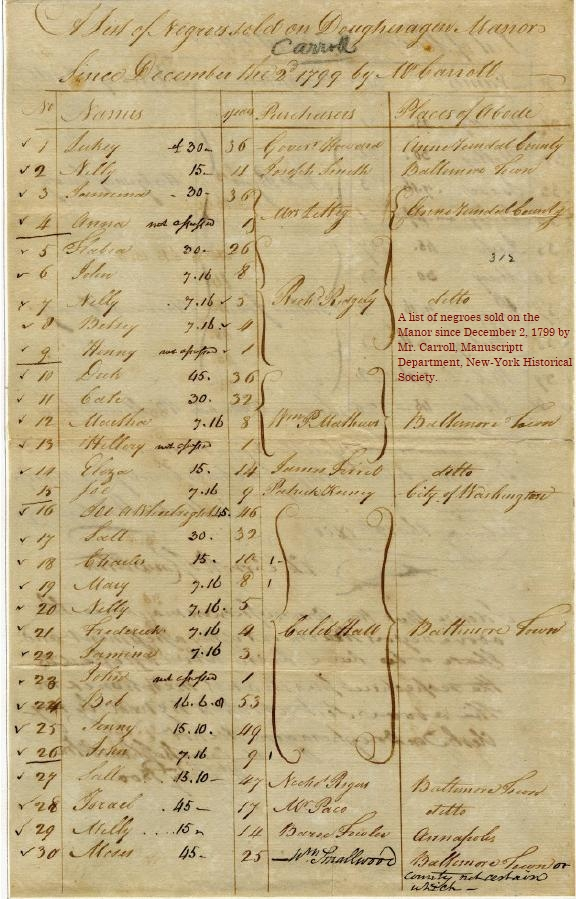 A List of Negroes sold on Doughoragen Manor
Carroll
Since December the 2d 1799 by Mr Carroll
No Names years Purchasers Places of Abode
1 Suckey 30 - 36 Goverr Howard Anne Arundal County
2 Nelly 15 - 11 Joseph Smith Baltimore Town
3 Jemima - 30 - 36
Mrs Anne Arundal County
4 Anna not assessed 1
5 30 - 26
312
6 John 7.16 8
7 Nelly 7.16 5 Richd Ridgely ditto
8 Betsey 7.16 4
9 Henny not assessed 1
A list of negroes sold on the
Manor since December 2, 1799 by
Mr. Carroll, Manuscriptt
Department, New-York Historical
Society.
10 Dick 45. 36
11 Cate 30. 32
12 Martha 7.16 8 Wm P. Mathews Baltimore Town
13 Hillery not assessed 1
14 Eliza 15. 14 James ditto
15 Joe 7.16 9 Patrick City of Washington
16 45. 46
17 Sall 30. 32
18 Charles 15. 10
19 Mary 7.16 8
20 Nelly 7.16. 5
21 Frederick 7.16 4 Caleb Hall Baltimore Town
22 Jamima 7.16 3
23 John not assessed 1
24 Bob 16.6.8 53
25 Jenny 15.10. 49
26 John 7.16 9
27 Sally 15.10 - 47 Nichs Rogers Baltimore Town
28 Israel 45 - 17 Mr Paca ditto
29 Milly 15 - 14 Baron Annapolis
30 Moses 45. 25 - Wm Smallwood Baltimore Town or
county not certain
which -